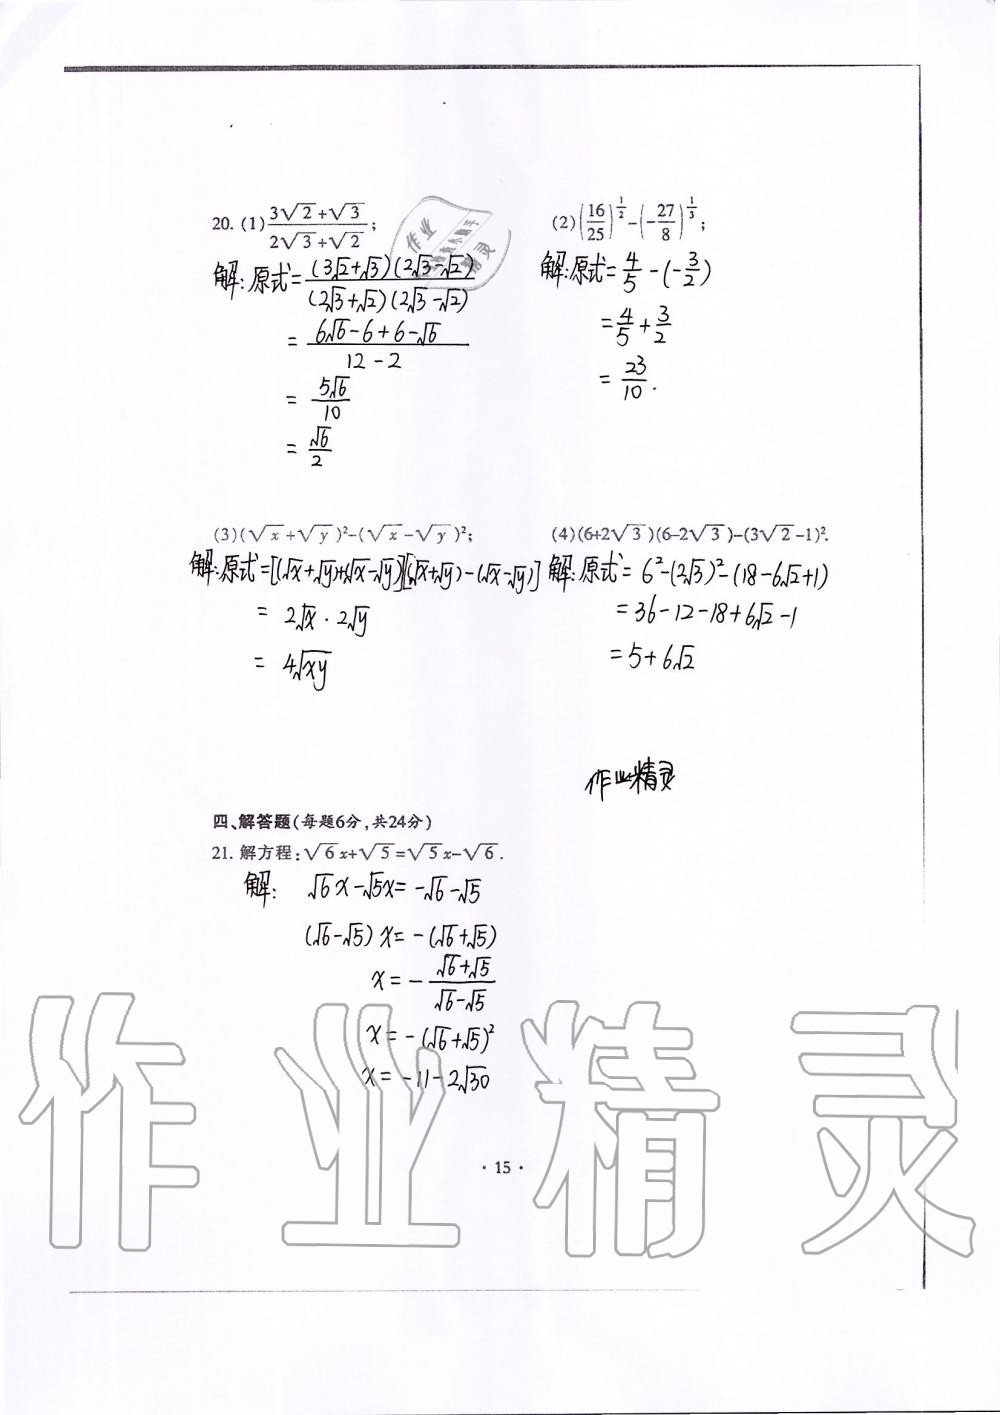 20. (1) (3√2+√3)/(2√3+√2);
解:原式=(3√2+√3)(2√3-√2)/(2√3+√2)(2√3-√2)
=(6√6-6+6-√6)/(12-2)
=5√6/10
=√6/2
(2)(16/25)^(1/2)-(-27/8)^(1/3);
解:原式=4/5-(-3/2)
=4/5+3/2
=23/10.
(3)(√x+√y)²-(√x-√y)²;
解:原式=[(√x+√y)+√x-√y)][(√x+√y)-(√x-√y)]
=2√x·2√y
=4√xy
(4)(6+2√3)(6-2√3)-(3√2-1)².
解:原式=6²-(2√3)²-(18-6√2+1)
=36-12-18+6√2-1
=5+6√2
作业精灵
四、解答题(每题6分,共24分)
21. 解方程:√6x+√5=√5x-√6.
解: √6x-√5x=-√6-√5
(√6-√5)x=-(√6+√5)
x=-(√6+√5)/(√6-√5)
x=-(√6+√5)²
x=-11-2√30
·15·
作业精灵